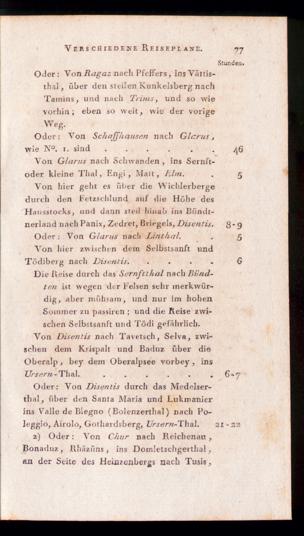 VERSCHIEDENE REISEPLANE. 77
Stunden.
Oder: Von Ragaz nach Pfeffers, ins Vättis-
thal, über den steilen Kunkelsberg nach
Tamins, und nach Trims, und so wie
vorhin; eben so weit, wie der vorige
Weg.
Oder: Von Schaffhausen nach Glarus,
wie No. 1. sind . . . . . . 46
Von Glarus nach Schwanden, ins Sernft-
oder kleine Thal, Engi, Matt, Elm. . 5
Von hier geht es über die Wichlerberge
durch den Fetzschlund auf die Höhe des
Hausstocks, und dann steil hinab ins Bünd-
nerland nach Panix, Zedret, Briegels, Disentis. 8-9
Oder: Von Glarus nach Linthal. . 5
Von hier zwischen dem Selbstsanft und
Tödiberg nach Disentis. . . . . 6
Die Reise durch das Sernftthal nach Bünd-
ten ist wegen der Felsen sehr merkwür-
dig, aber mühsam, und nur im hohen
Sommer zu passiren; und die Reise zwi-
schen Selbstsanft und Tödi gefährlich.
Von Disentis nach Tavetsch, Selva, zwi-
schen dem Krispalt und Baduz über die
Oberalp, bey dem Oberalpsee vorbey, ins
Ursern-Thal. . . . . . . 6-7
Oder: Von Disentis durch das Medelser-
thal, über den Santa Maria und Lukmanier
ins Valle di Blegno (Bolenzerthal) nach Po-
leggio, Airolo, Gothardsberg, Ursern-Thal. 21-22
2) Oder: Von Chur nach Reichenau,
Bonaduz, Rhäzüns, ins Domletschgerthal,
an der Seite des Heinzenbergs nach Tusis,